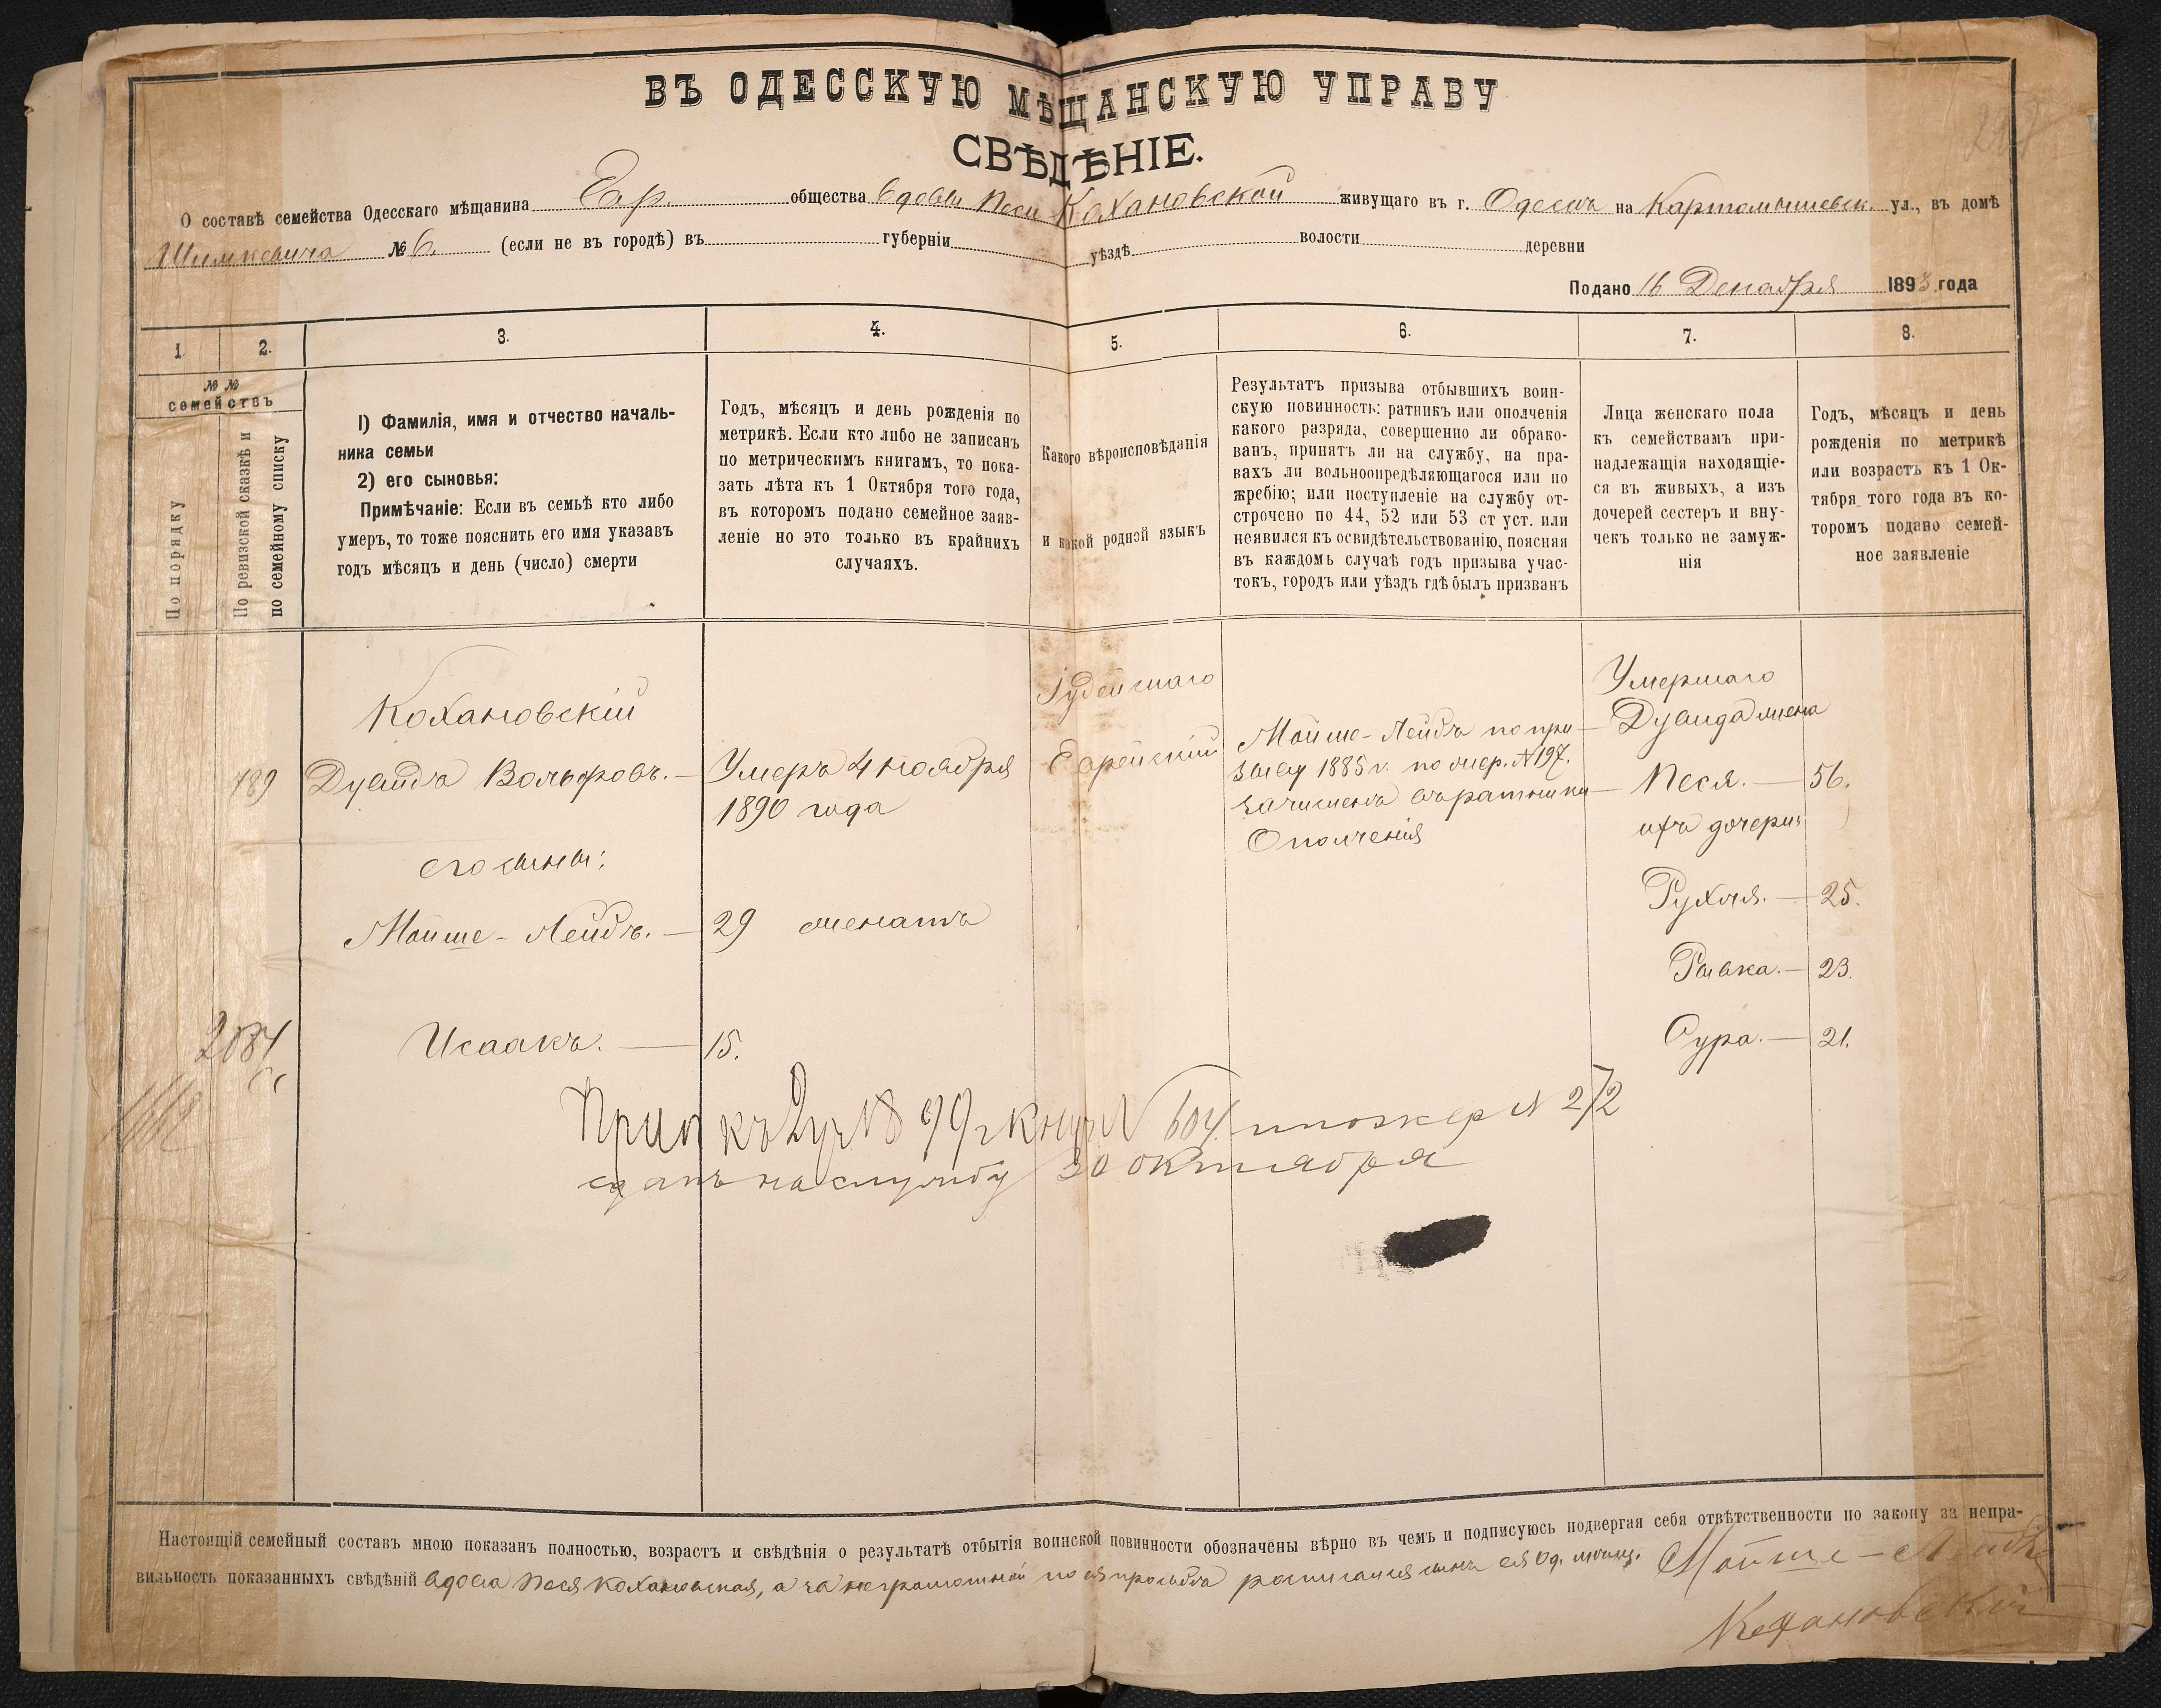 ВЪ ОДЕССКУЮ МѢЩАНСКУЮ УПРАВУ
СВѢДѢНІЕ.
О составѣ семейства Одесскаго мѣщанина Евр. общества вдовы Песи Кохановской живущаго въ г. Одессѣ на Картамышевск. ул., въ домѣ
Шимкевича № 6. (если не въ городѣ) въ губерніи уѣздѣ волости деревни
Подано 16 Декабря 1893 года
1. 2. 3. 4. 5. 6. 7. 8.
№ №
семействъ
По порядку
По ревизской сказкѣ и
по семейному списку
1) Фамилія, имя и отчество началь-
ника семьи
2) его сыновья:
Примѣчаніе: Если въ семьѣ кто либо
умеръ, то тоже пояснить его имя указавъ
годъ мѣсяцъ и день (число) смерти
Годъ, мѣсяцъ и день рожденія по
метрикѣ. Если кто либо не записанъ
по метрическимъ книгамъ, то пока-
зать лѣта къ 1 Октября того года,
въ которомъ подано семейное заяв-
леніе но это только въ крайнихъ
случаяхъ.
Какого вѣроисповѣданія
и какой родной языкъ
Результатъ призыва отбывшихъ воин-
скую повинность: ратникъ или ополченія
какого разряда, совершенно ли обрако-
ванъ, принятъ ли на службу, на пра-
вахъ ли вольноопредѣляющагося или по
жребію; или поступленіе на службу от-
строчено по 44, 52 или 53 ст уст. или
неявился къ освидѣтельствованію, поясняя
въ каждомъ случаѣ годъ призыва учас-
токъ, городъ или уѣздъ гдѣ былъ призванъ
Лица женскаго пола
къ семействамъ при-
надлежащія находящіе-
ся въ живыхъ, а изъ
дочерей сестеръ и вну-
чекъ только не замуж-
нія
Годъ, мѣсяцъ и день
рожденія по метрикѣ
или возрастъ къ 1 Ок-
тября того года въ ко-
торомъ подано семей-
ное заявленіе
189
Кохановскій
Дувидъ Вольфовъ.
Умеръ 4 ноября
1890 года
Іудейскаго
Еврейскій
Мойше-Лейбъ по при-
зыву 1885 г. по жер. № 197.
зачисленъ въ ратники
Ополченія
Умершаго
Дувида жена
Песя. — 56.
ихъ дочери:
Рухля. — 25.
Ривка. — 23.
Сура. — 21.
его сыны:
Мойше-Лейбъ. — 29 женатъ
2084
Исаакъ. — 15.
604 по жер № 272
сданъ на службу 30 октября
Настоящій семейный составъ мною показанъ полностью, возрастъ и свѣдѣнія о результатѣ отбытія воинской повинности обозначены вѣрно въ чемъ и подписуюсь подвергая себя отвѣтственности по закону за непра-
вильность показанныхъ свѣдѣній вдова Песя Кохановская, а за неграмотной по ея просьбѣ росписался сынъ ея Од. мѣщ. Мойше-Лейбъ
Кохановскій